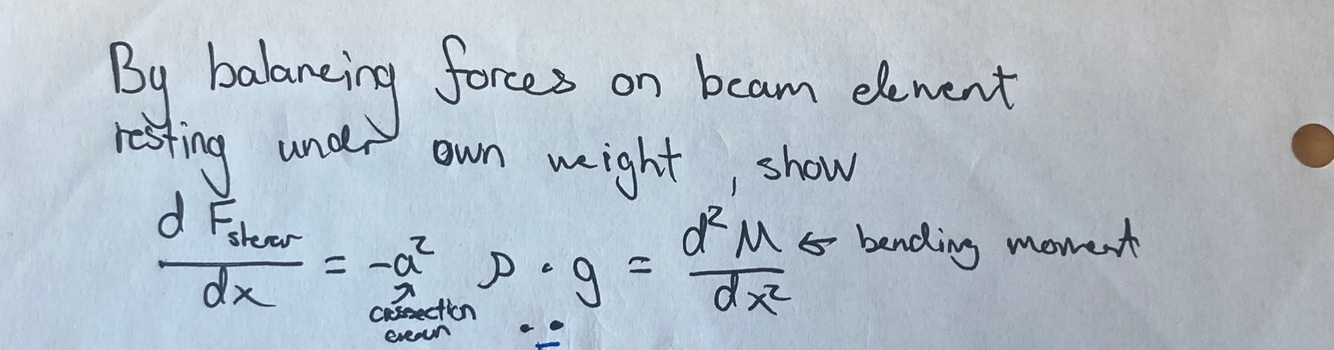 By balancing forces on beam element
resting under own weight, show
d F_shear / dx = -a² ρ · g = d²M / dx² ← bending moment
↑